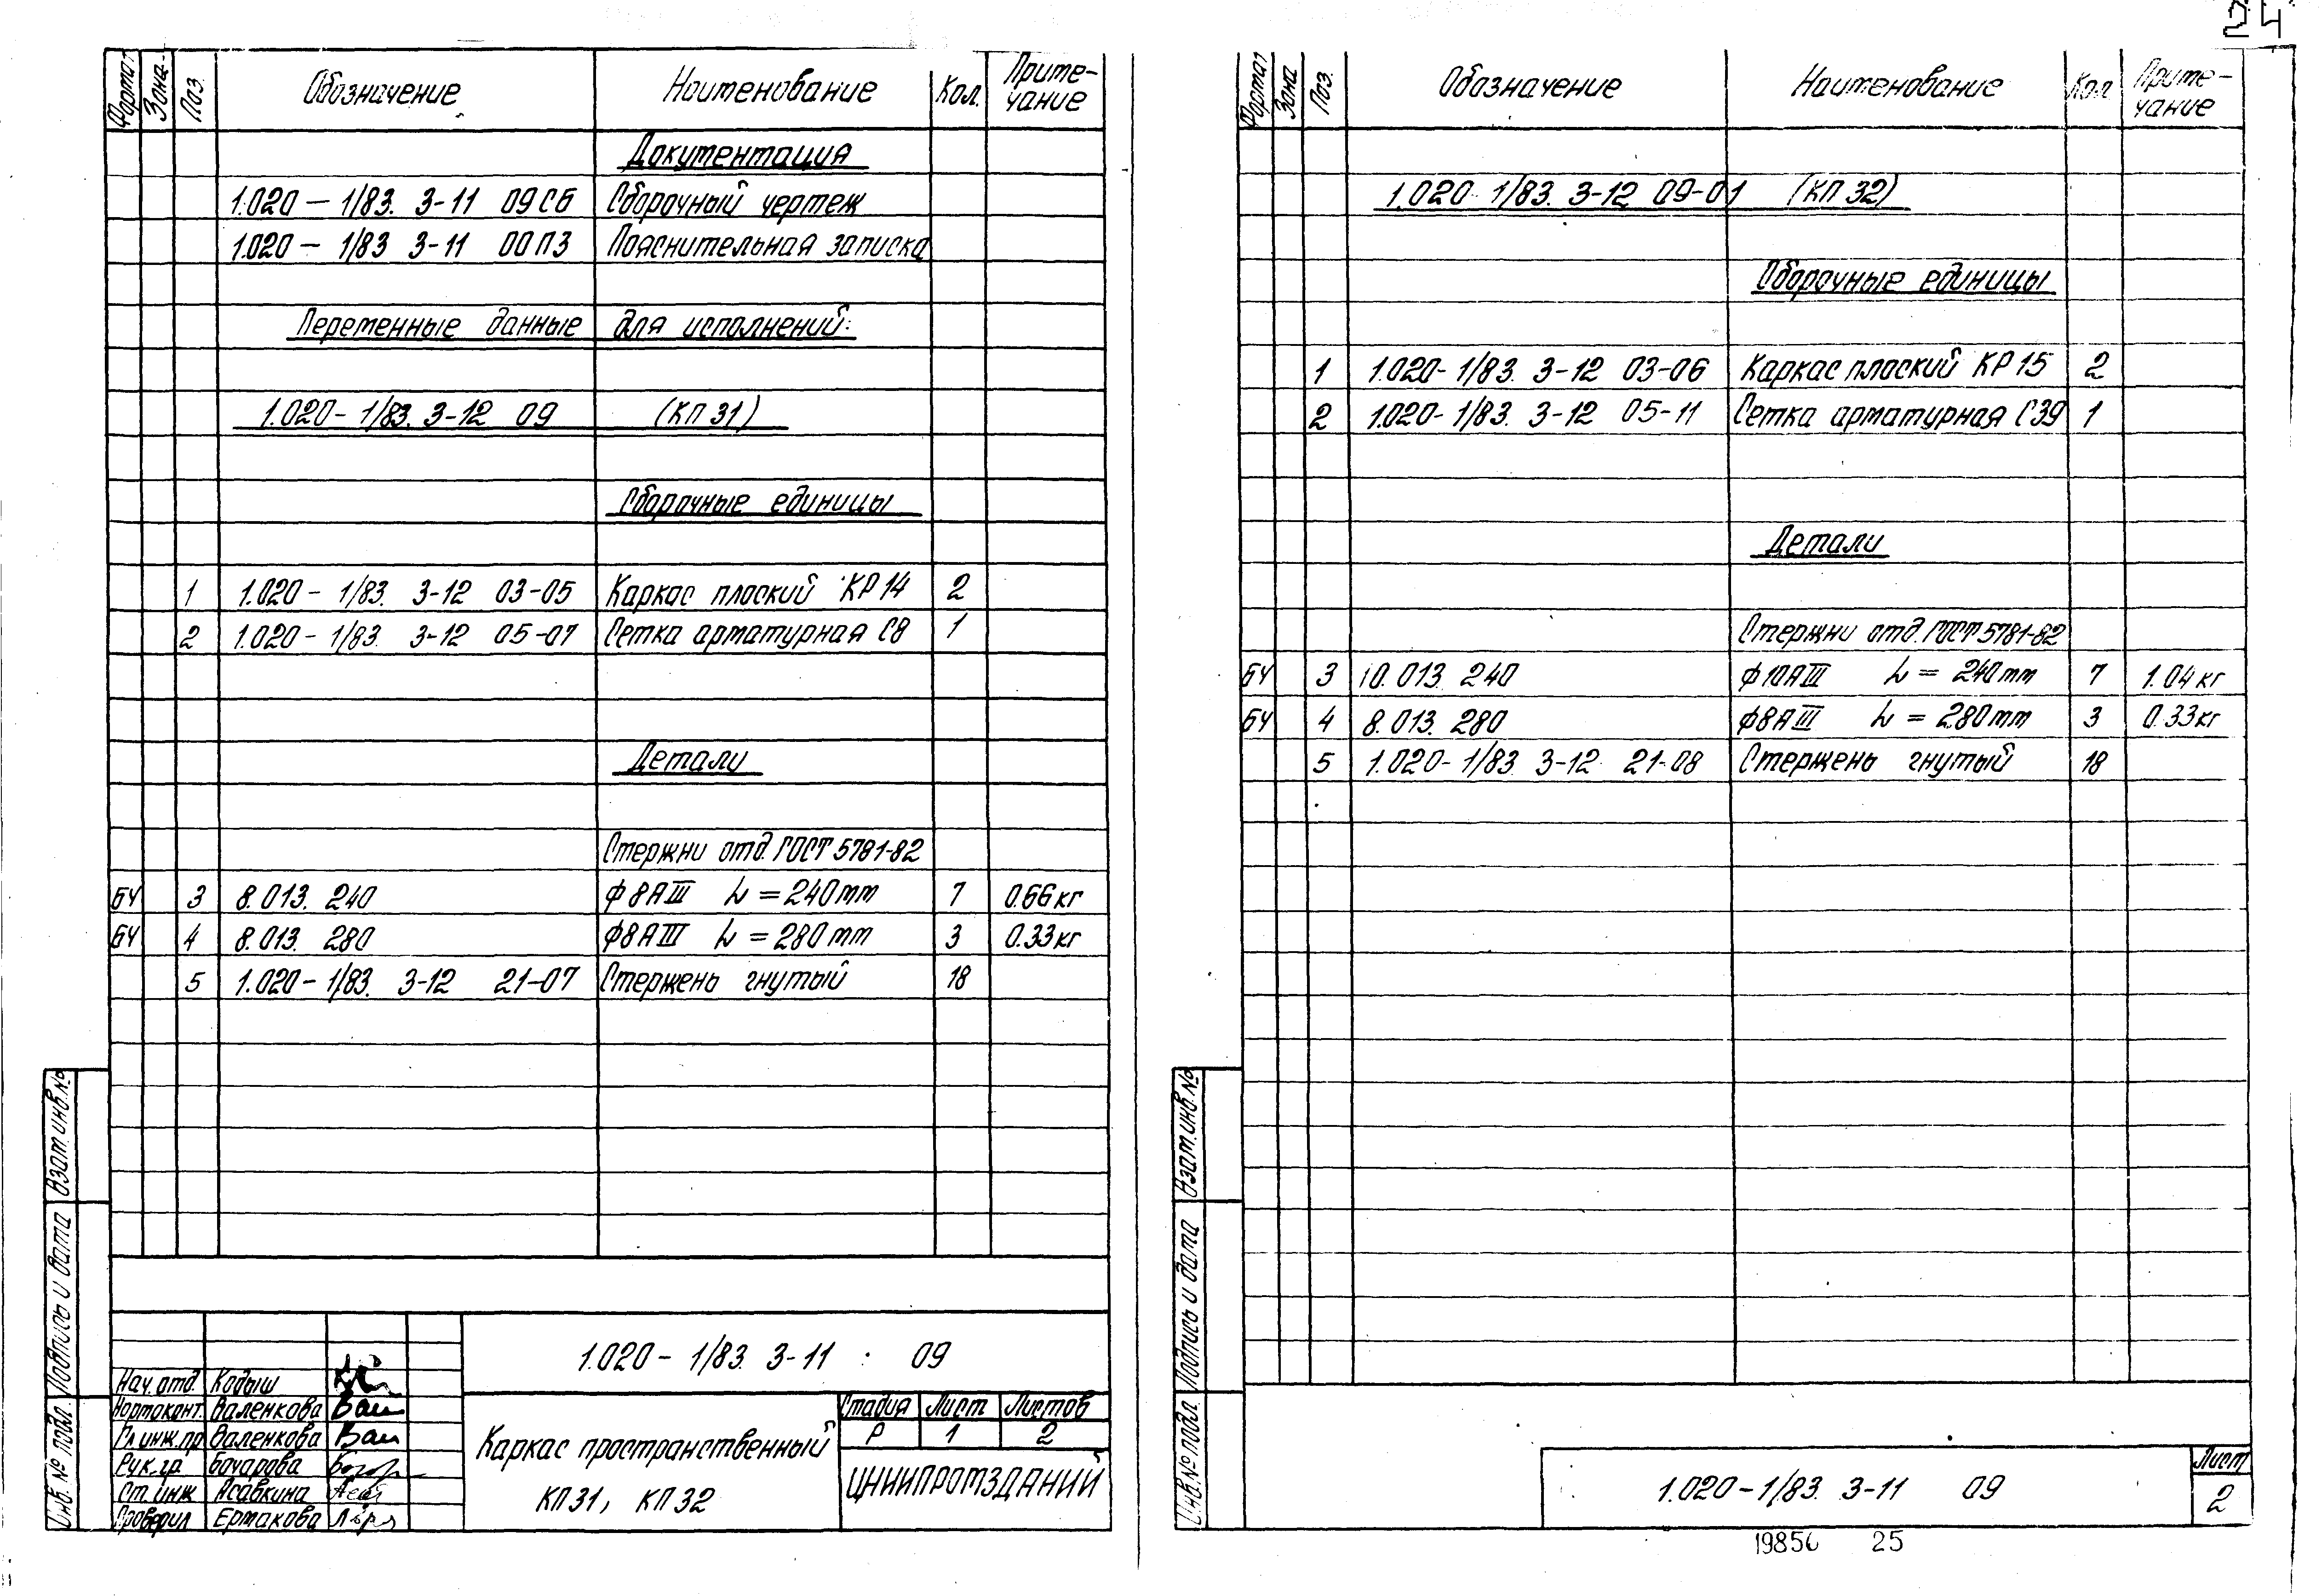 24
Формат Зона Поз. Обозначение Наименование Кол. Приме-чание
Документация
1.020-1/83. 3-11 09СБ Сборочный чертеж
1.020-1/83 3-11 00ПЗ Пояснительная записка
Переменные данные для исполнений:
1.020-1/83. 3-12 09 (КП 31)
Сборочные единицы
1 1.020-1/83. 3-12 03-05 Каркас плоский КР 14 2
2 1.020-1/83. 3-12 05-07 Сетка арматурная С8 1
Детали
Стержни отд. ГОСТ 5781-82
БЧ 3 8.013. 240 ф8АIII L=240мм 7 0.66кг
БЧ 4 8.013. 280 ф8АIII L=280мм 3 0.33кг
5 1.020-1/83. 3-12 21-07 Стержень гнутый 18
Взам.инв.№
Подпись и дата
Инв.№ подл.
1.020-1/83. 3-11 09
Нач.отд. Кодыш
Нормоконт. Валенкова
Гл.инж.пр Валенкова
Рук.гр Бочарова
Ст.инж Асавкина
Проверил Ермакова
Каркас пространственный
КП31, КП32
Стадия Лист Листов
Р 1 2
ЦНИИПРОМЗДАНИЙ
Формат Зона Поз. Обозначение Наименование Кол Приме-чание
1.020-1/83. 3-12 09-01 (КП 32)
Сборочные единицы
1 1.020-1/83. 3-12 03-06 Каркас плоский КР 15 2
2 1.020-1/83. 3-12 05-11 Сетка арматурная С39 1
Детали
Стержни отд. ГОСТ 5781-82
БЧ 3 10.013. 240 ф10АIII L=240мм 7 1.04кг
БЧ 4 8.013. 280 ф8АIII L=280мм 3 0.33кг
5 1.020-1/83. 3-12 21-08 Стержень гнутый 18
Взам.инв.№
Подпись и дата
Инв.№ подл.
1.020-1/83. 3-11 09
Лист
2
19856 25